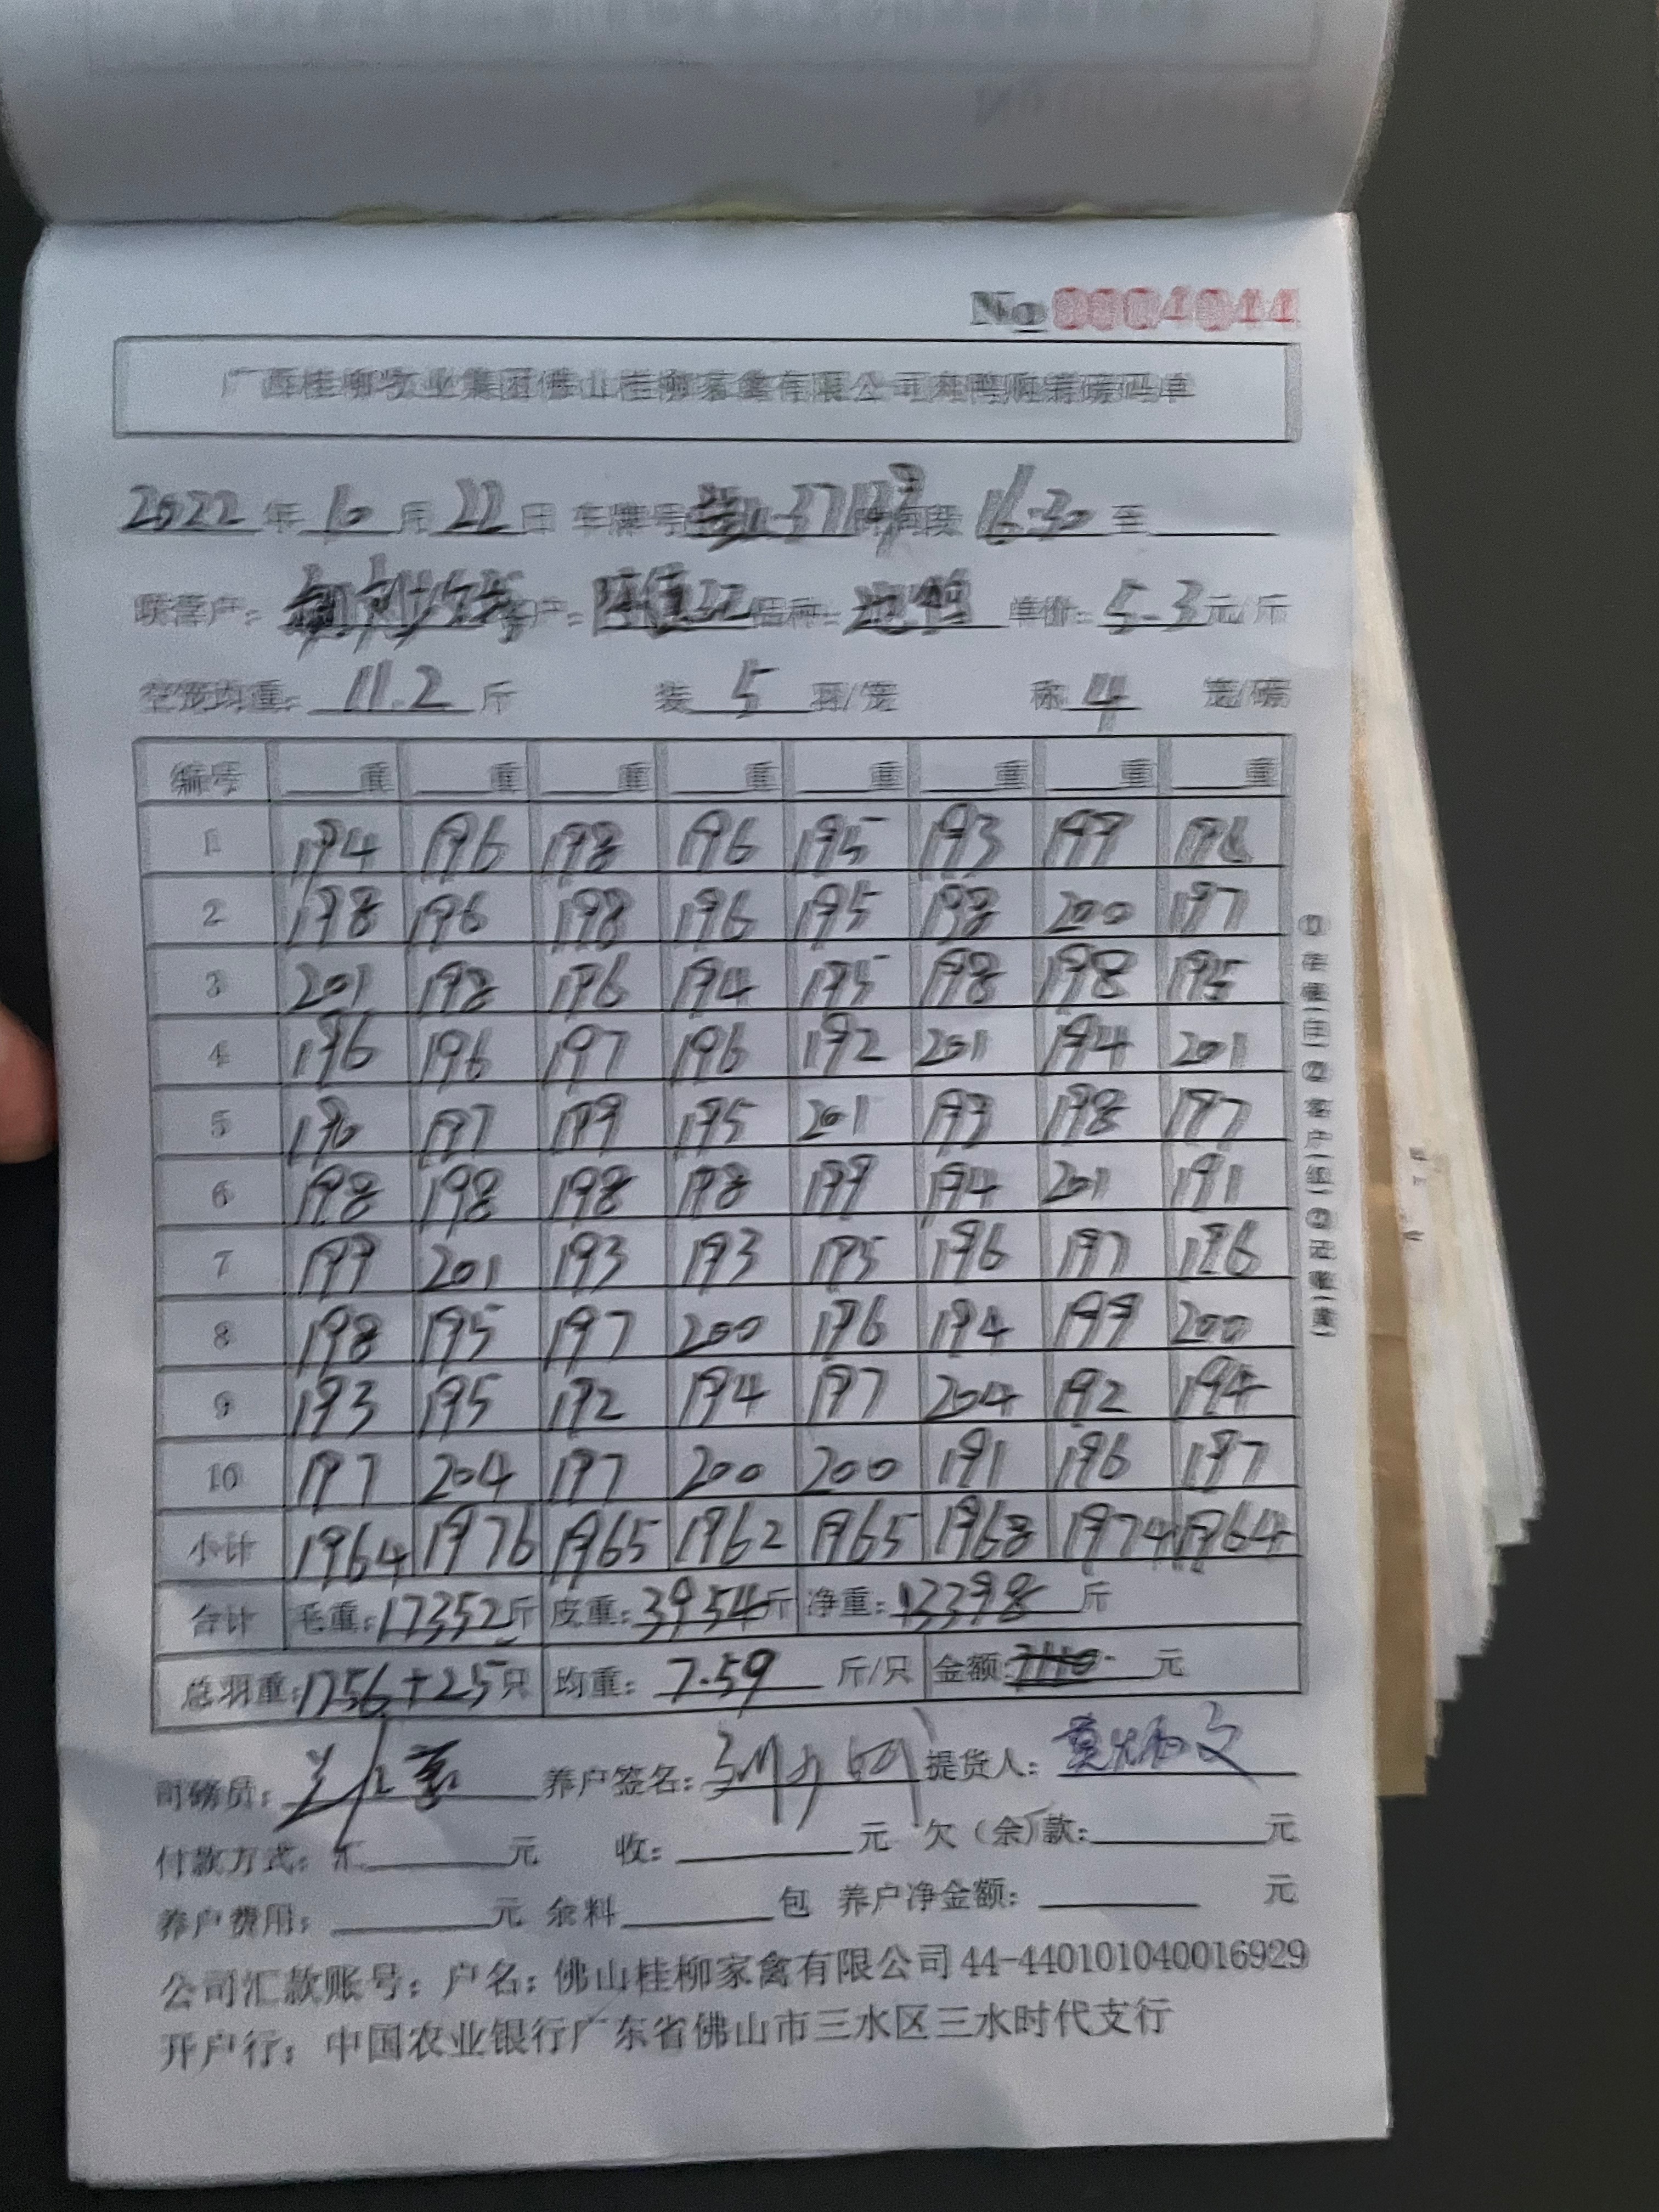 No
广西桂柳牧业集团佛山桂柳家禽有限公司肉鸭购销磅码单
2022 年 10 月 22 日 车牌号 时间段 16:30 至
客户: 品种: 单价: 5.3 元/斤
空笼均重: 11.2 斤 装 5 羽/笼 称 4 笼/磅
编号 重 重 重 重 重 重 重 重
1 194 196 198 196 195 193 199 196
2 198 196 198 196 195 198 200 197
3 201 198 196 194 195 198 198 195
4 196 196 197 196 192 201 194 201
5 190 197 199 195 201 199 198 197
6 198 198 198 198 199 194 201 191
7 199 201 193 193 195 196 197 196
8 198 195 197 200 196 194 199 200
9 193 195 192 194 197 204 192 194
10 197 204 197 200 200 191 196 197
小计 1964 1976 1965 1962 1965 1968 1974 1964
合计 毛重: 17352 斤 皮重: 3954 斤 净重: 13398 斤
总羽重: 1756+25 只 均重: 7.59 斤/只 金额: 元
司磅员: 养户签名: 提货人:
付款方式: 汇 元 收: 元 欠(余)款: 元
养户费用: 元 余料 包 养户净金额: 元
公司汇款账号: 户名: 佛山桂柳家禽有限公司 44-440101040016929
开户行: 中国农业银行广东省佛山市三水区三水时代支行